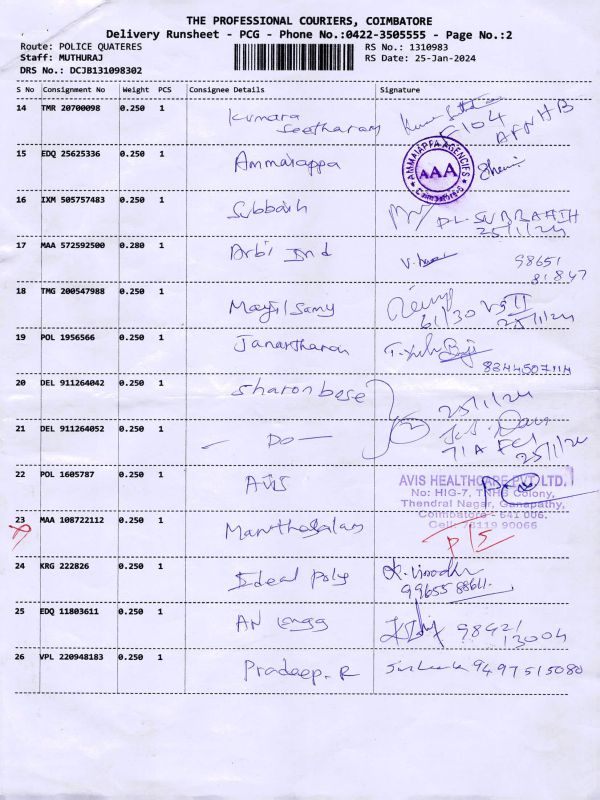 THE PROFESSIONAL COURIERS, COIMBATORE
Delivery Runsheet - PCG - Phone No.:0422-3505555 - Page No.:2
Route: POLICE QUATERES RS No.: 1310983
Staff: MUTHURAJ RS Date: 25-Jan-2024
DRS No.: DCJB131098302
S No Consignment No Weight PCS Consignee Details Signature
14 TMR 20700098 0.250 1 Kumara
Seetharam
F104
AFNHB
15 EDQ 25625336 0.250 1 Ammaiappa
AMMAIAPPA AGENCIES
AAA
Coimbatore-6
16 IXM 505757483 0.250 1 Subbaih
SUBBAHIH
25/1/24
17 MAA 572592500 0.280 1 Arbi Ind
98651
81847
18 TMG 200547988 0.250 1 Mayil Samy
61/30 VSII
25/1/24
19 POL 1956566 0.250 1 Janartharan
8344507114
20 DEL 911264042 0.250 1 Sharon bose
25/1/24
21 DEL 911264052 0.250 1 — Do —
71A FCI
25/1/24
22 POL 1605787 0.250 1 AVIS
AVIS HEALTHCARE PVT. LTD.
No: HIG-7, TNHB Colony,
Thendral Nagar, Ganapathy,
Coimbatore - 641 006.
Cell: 73119 90066
23 MAA 108722112 0.250 1
P/S
24 KRG 222826 0.250 1 Ideal Poly K. Vinodh
99655 88611.
25 EDQ 11803611 0.250 1 AN Engg
98421
13004
26 VPL 220948183 0.250 1 Pradeep. R 9497515080